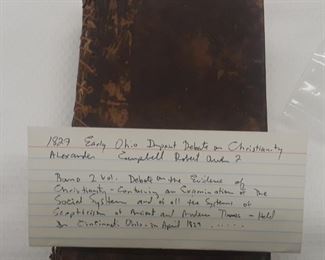 1829 Early Ohio Imprint Debate on Christianity
Alexander Campbell Robert Owen 2
Bound 2 vol. Debate on the Evidence of
Christianity - Containing an Examination of The
Social System and of all the Systems of
Scepticism of Ancient and Modern Times - Held
In Cincinnati Ohio - in April 1829 . . . . .